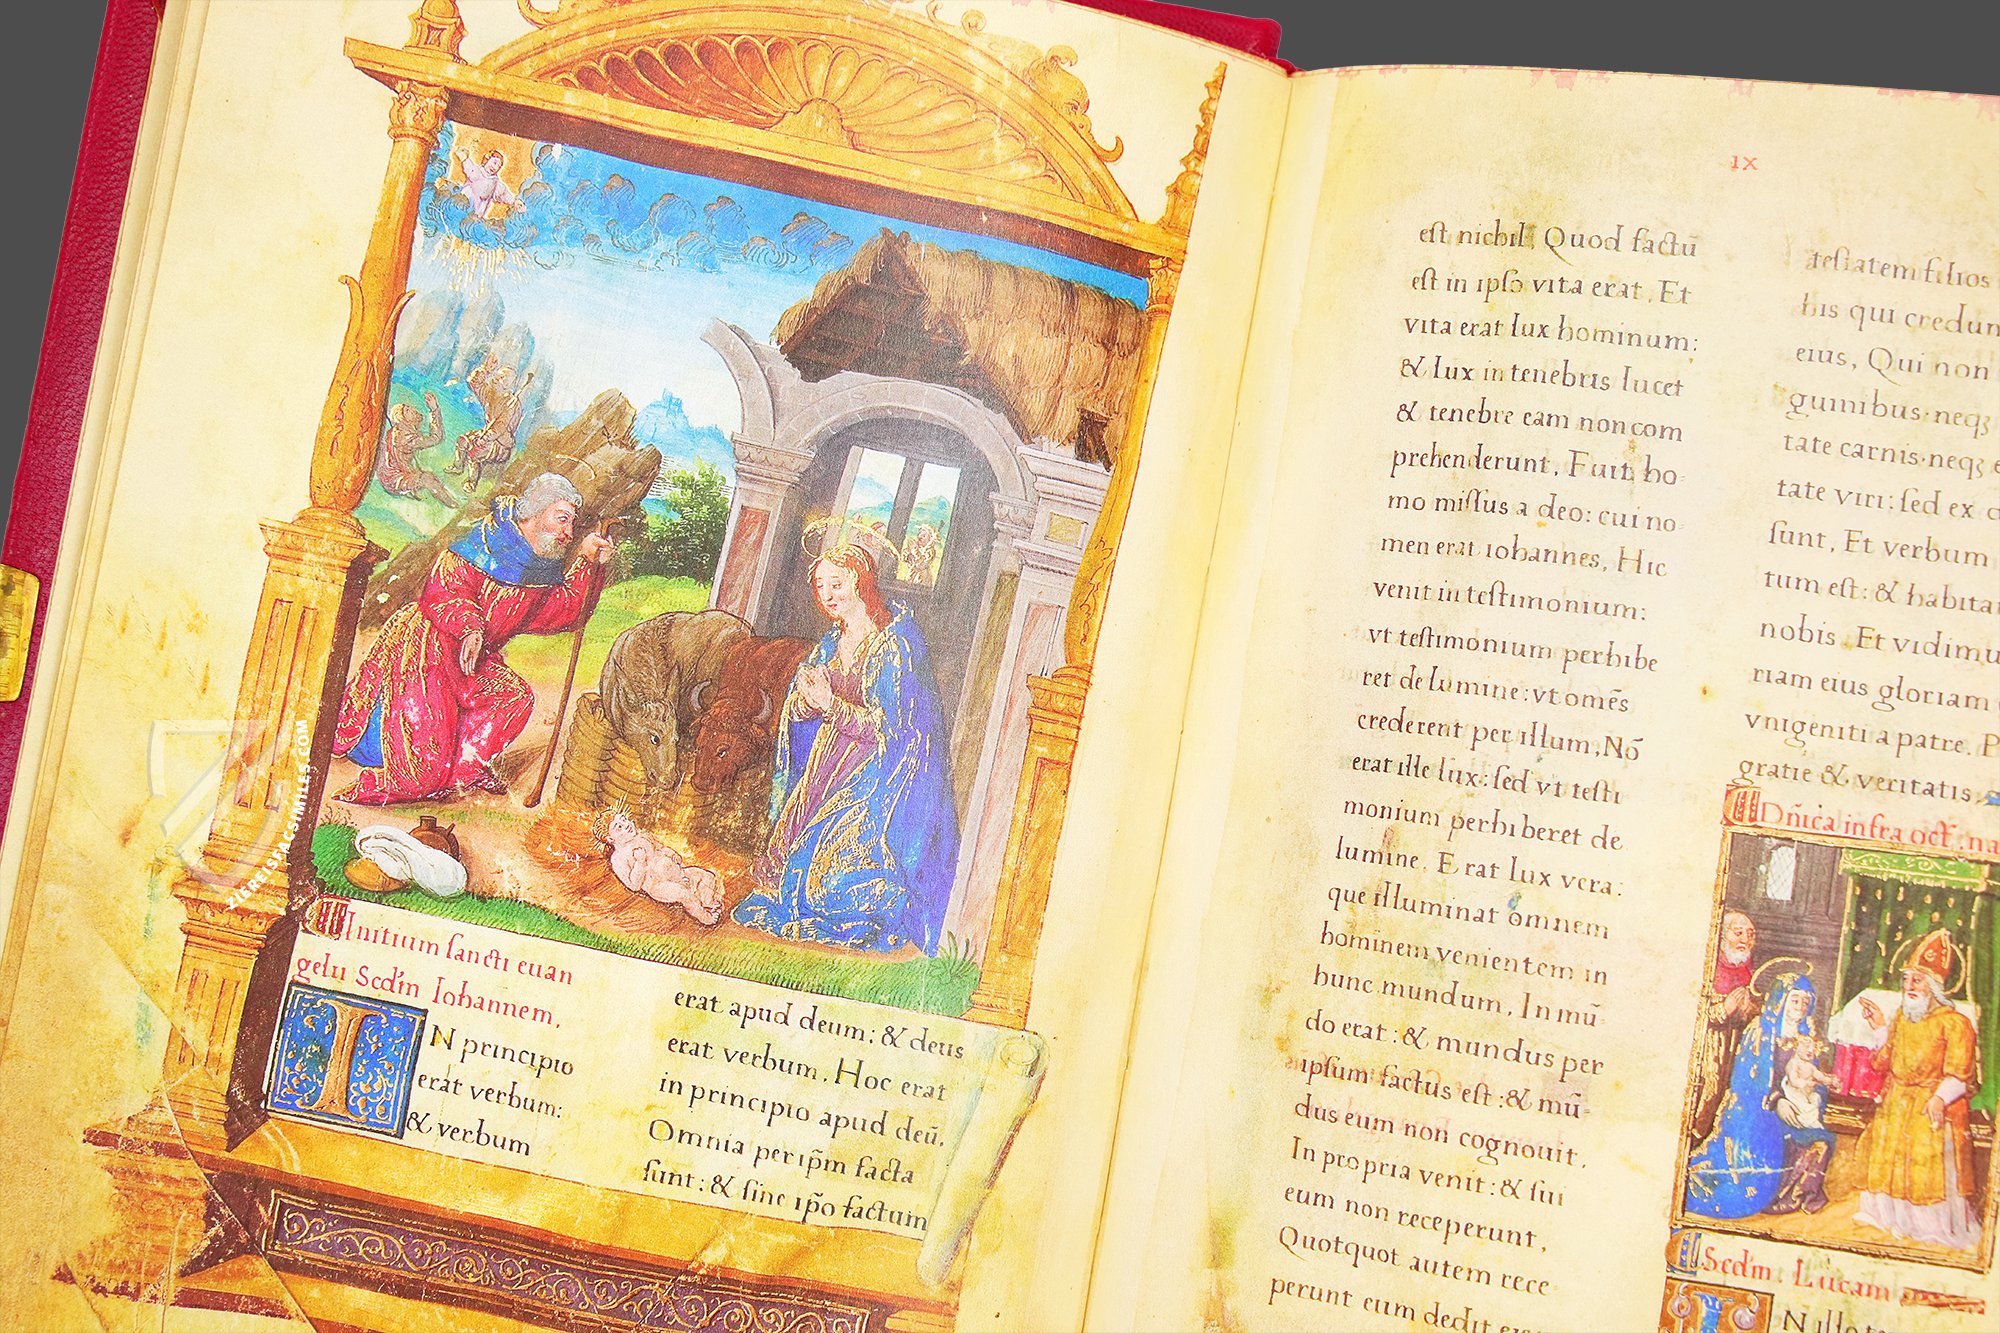 Initium sancti euan
gelii Scd̄m Iohannem.
IN principio
erat verbum:
& verbum
erat apud deum: & deus
erat verbum. Hoc erat
in principio apud deū.
Omnia per ip̄m facta
sunt: & sine ip̄o factum
IX
est nichil. Quod factū
est in ipso vita erat. Et
vita erat lux hominum:
& lux in tenebris lucet
& tenebre eam non com
prehenderunt. Fuit ho-
mo missus a deo: cui no-
men erat iohannes. Hic
venit in testimonium:
vt testimonium perhibe
ret de lumine: vt om̄es
crederent per illum. Nō
erat ille lux: sed vt testi
monium perhiberet de
lumine. Erat lux vera:
que illuminat omnem
hominem venientem in
hunc mundum. In mū-
do erat: & mundus per
ipsum factus est: & mū-
dus eum non cognouit.
In propria venit: & sui
eum non receperunt.
Quotquot autem rece
perunt eum dedit eis
testatem filios
his qui credun
eius. Qui non
guinibus: neqꝫ
tate carnis: neqꝫ
tate viri: sed ex
sunt. Et verbum
tum est: & habita
nobis. Et vidimu
riam eius gloriam
vnigeniti a patre. P
gratie & veritatis.
Dn̄ica infra oct. na
Scd̄m. Lucam
IN illo
ZIEREISFACSIMILES.COM